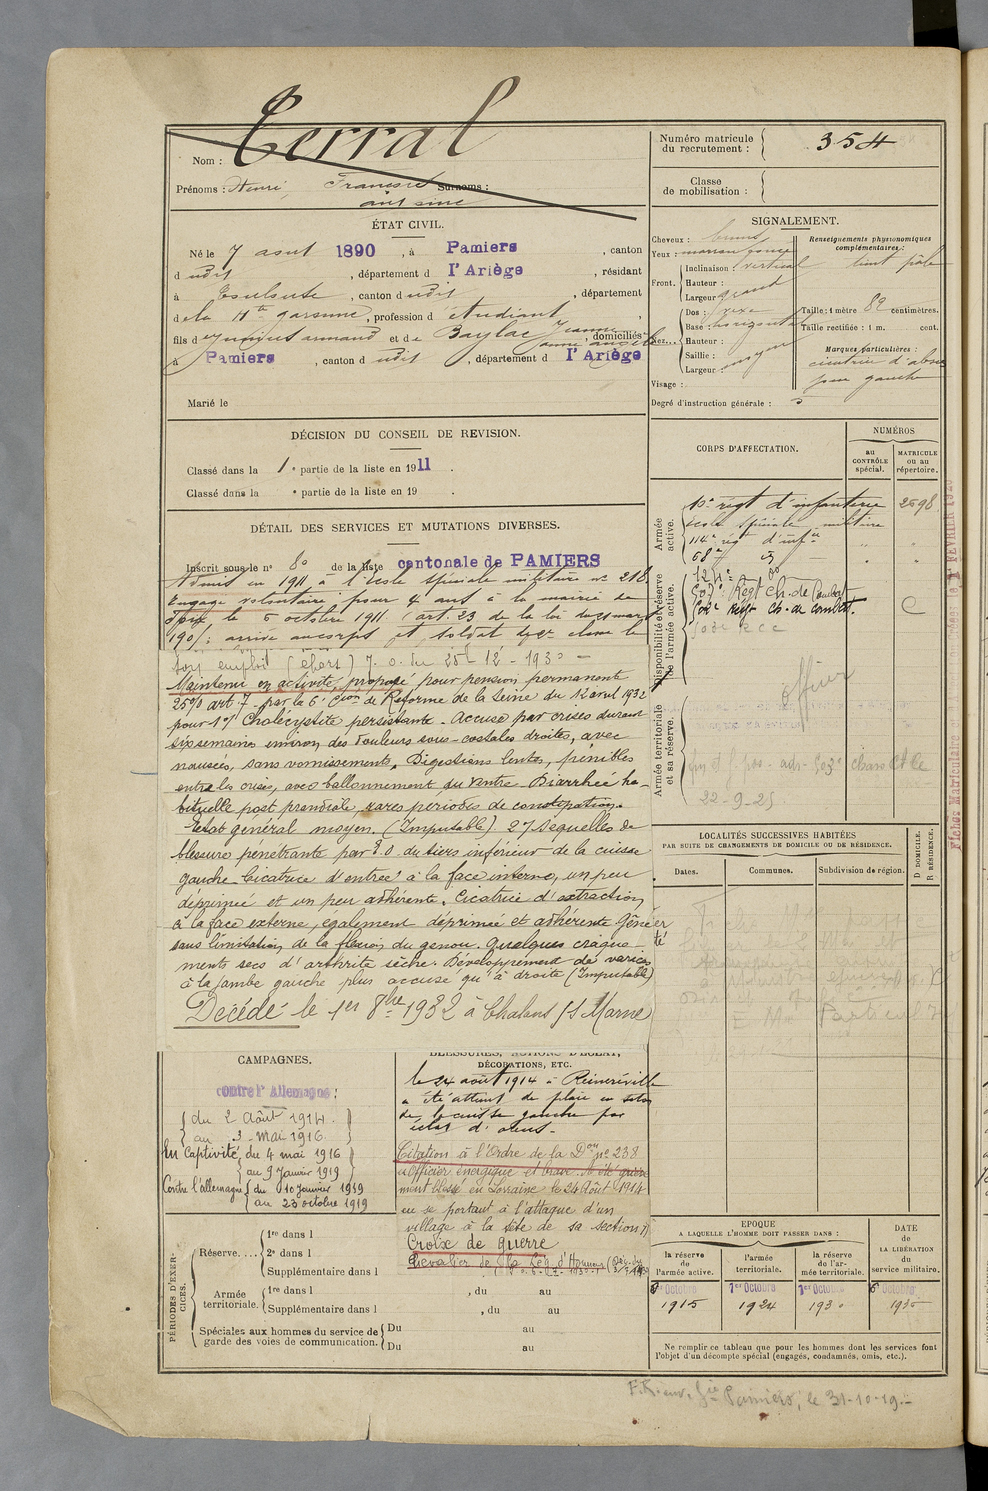 Terral
Nom :
Prénoms : Henri François Surnoms :
antoine
Numéro matricule
du recrutement :
354
Classe
de mobilisation :
ÉTAT CIVIL.
Né le 7 aout 1890, à Pamiers, canton
dudit, département d l'Ariège, résidant
à Toulouse, canton dudit, département
de la Hte garonne, profession d étudiant,
fils d armand et de Baylac Jeanne, domiciliés
à Pamiers, canton dudit, département d l'Ariège
Marié le
SIGNALEMENT.
Cheveux : bruns
Yeux : marron
Front.
Inclinaison : vertical
Hauteur :
Largeur : grand
Nez...
Dos : vexe
Base : horizontal
Hauteur :
Saillie :
Largeur : moyen
Visage :
Renseignements physionomiques
complémentaires :
teint pâle
Taille : 1 mètre 82 centimètres.
Taille rectifiée : 1 m. cent.
Marques particulières :
cicatrice d'abcès
gauche
Degré d'instruction générale : 5
DÉCISION DU CONSEIL DE REVISION.
Classé dans la 1e partie de la liste en 1911.
Classé dans la e partie de la liste en 19 .
DÉTAIL DES SERVICES ET MUTATIONS DIVERSES.
Inscrit sous le no 80 de la liste cantonale de PAMIERS
Admis en 1911 à l'Ecole spéciale militaire no 218.
Engagé volontaire pour 4 ans à la mairie de
le 6 octobre 1911. (art. 23 de la loi du mars
1905) : arrivé au corps et soldat de 2e classe le
emploi (chars) J. O. du 25-12-1930 -
Maintenu en activité, proposé pour pension permanente
25% art 7 par la 6e Con de Réforme de la Seine du 12 avril 1932
pour 1°/ Cholécystite persistante - Accuse par crises durant
six semaines environ des douleurs sous-costales droites, avec
nausées, sans vomissements. Digestions lentes, pénibles
entre les crises, avec ballonnement du ventre - Diarrhée ha-
bituelle post prandiale, rares périodes de constipation -
Etat général moyen. (Imputable) 2°/ Séquelles de
blessure pénétrante par E.O. du tiers inférieur de la cuisse
gauche - Cicatrice d'entrée à la face interne, un peu
déprimée et un peu adhérente. Cicatrice d'extraction
à la face externe, également déprimée et adhérente Gêne
sans limitation de la flexion du genou. Quelques craque-
ments secs d'arthrite sèche. Développement de varices
à la jambe gauche plus accusé qu'à droite (Imputable)
Décédé le 1er 8bre 1932 à Chalons s/s Marne
CORPS D'AFFECTATION.
NUMÉROS
au
CONTRÔLE
spécial.
MATRICULE
ou au
répertoire.
Armée
active.
régt d'infanterie 2598
école spéciale militaire
114e régt d'infie
68e
Disponibilité et réserve
de l'armée active
124e
507e Regt Ch. de Combat
508e Regt Ch. de combat
C
Armée territoriale
et sa réserve.
officier
22-9-25
LOCALITÉS SUCCESSIVES HABITÉES
PAR SUITE DE CHANGEMENTS DE DOMICILE OU DE RÉSIDENCE.
Dates.
Communes.
Subdivision de région.
D DOMICILE.
R RÉSIDENCE.
CAMPAGNES.
contre l'Allemagne :
du 2 Août 1914.
au 3 - Mai 1916.
En Captivité du 4 mai 1916
au 9 Janvier 1919
Contre l'Allemagne du 10 janvier 1919
au 23 octobre 1919
BLESSURES, ACTIONS D'ÉCLAT,
DÉCORATIONS, ETC.
le 24 août 1914 à
a été atteint de plaie en
de la cuisse gauche par
éclat d'obus.
Citation à l'Ordre de la Don no 238
"Officier énergique et brave. A été
ment blessé en Lorraine le 24 Août 1914
en se portant à l'attaque d'un
village à la tête de sa section"
Croix de guerre
Chevalier de la Lég. d'Honneur
PÉRIODES D'EXER-
CICES.
Réserve....
1re dans l
2e dans l
Supplémentaire dans l
Armée
territoriale.
1re dans l , du au
Supplémentaire dans l , du au
Spéciales aux hommes du service de
garde des voies de communication.
Du au
Du au
EPOQUE
A LAQUELLE L'HOMME DOIT PASSER DANS :
la réserve
de l'armée active.
l'armée
territoriale.
la réserve
de l'ar-
mée territoriale.
DATE
de
LA LIBÉRATION
du
service militaire.
Octobre
1915
1er Octobre
1924
1er Octobre
1930
Octobre
Ne remplir ce tableau que pour les hommes dont les services font
l'objet d'un décompte spécial (engagés, condamnés, omis, etc.).
Pamiers, le 31-10-19.-